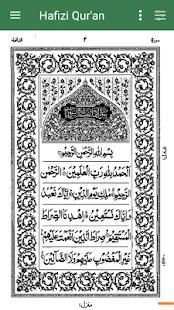 Hafizi Qur'an
٢
بِسْمِ اللّٰهِ الرَّحْمٰنِ الرَّحِيْمِ
اَلْحَمْدُ لِلّٰهِ رَبِّ الْعٰلَمِيْنَ الرَّحْمٰنِ
الرَّحِيْمِ مٰلِكِ يَوْمِ الدِّيْنِ اِيَّاكَ نَعْبُدُ
وَاِيَّاكَ نَسْتَعِيْنُ اِهْدِنَا الصِّرَاطَ
الْمُسْتَقِيْمَ صِرَاطَ الَّذِيْنَ اَنْعَمْتَ عَلَيْهِمْ
غَيْرِ الْمَغْضُوْبِ عَلَيْهِمْ وَلَا الضَّآلِّيْنَ
منزل١